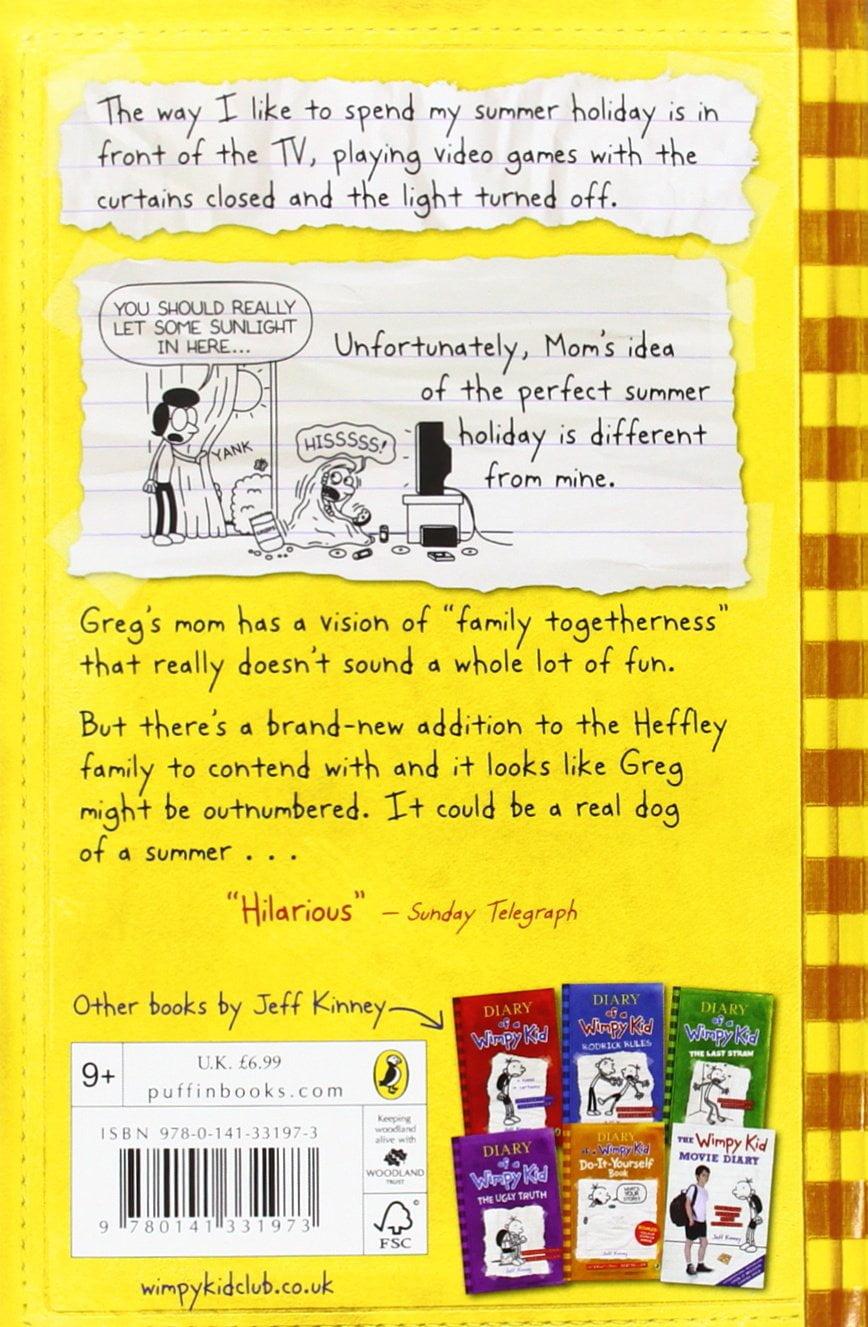 The way I like to spend my summer holiday is in
front of the TV, playing video games with the
curtains closed and the light turned off.
YOU SHOULD REALLY
LET SOME SUNLIGHT
IN HERE...
YANK
HISSSSS!
Unfortunately, Mom's idea
of the perfect summer
holiday is different
from mine.
Greg's mom has a vision of "family togetherness"
that really doesn't sound a whole lot of fun.
But there's a brand-new addition to the Heffley
family to contend with and it looks like Greg
might be outnumbered. It could be a real dog
of a summer . . .
"Hilarious" – Sunday Telegraph
Other books by Jeff Kinney
DIARY
of a
Wimpy Kid
DIARY
of a
Wimpy Kid
RODRICK RULES
DIARY
of a
Wimpy Kid
THE LAST STRAW
DIARY
of a
Wimpy Kid
THE UGLY TRUTH
Jeff Kinney
DIARY
of a Wimpy Kid
Do-It-Yourself
Book
WHAT'S
YOUR
STORY?
Jeff Kinney
THE Wimpy Kid
MOVIE DIARY
Jeff Kinney
9+
U.K. £6.99
puffinbooks.com
ISBN 978-0-141-33197-3
9 780141 331973
Keeping
woodland
alive with
WOODLAND
TRUST
©
FSC
wimpykidclub.co.uk